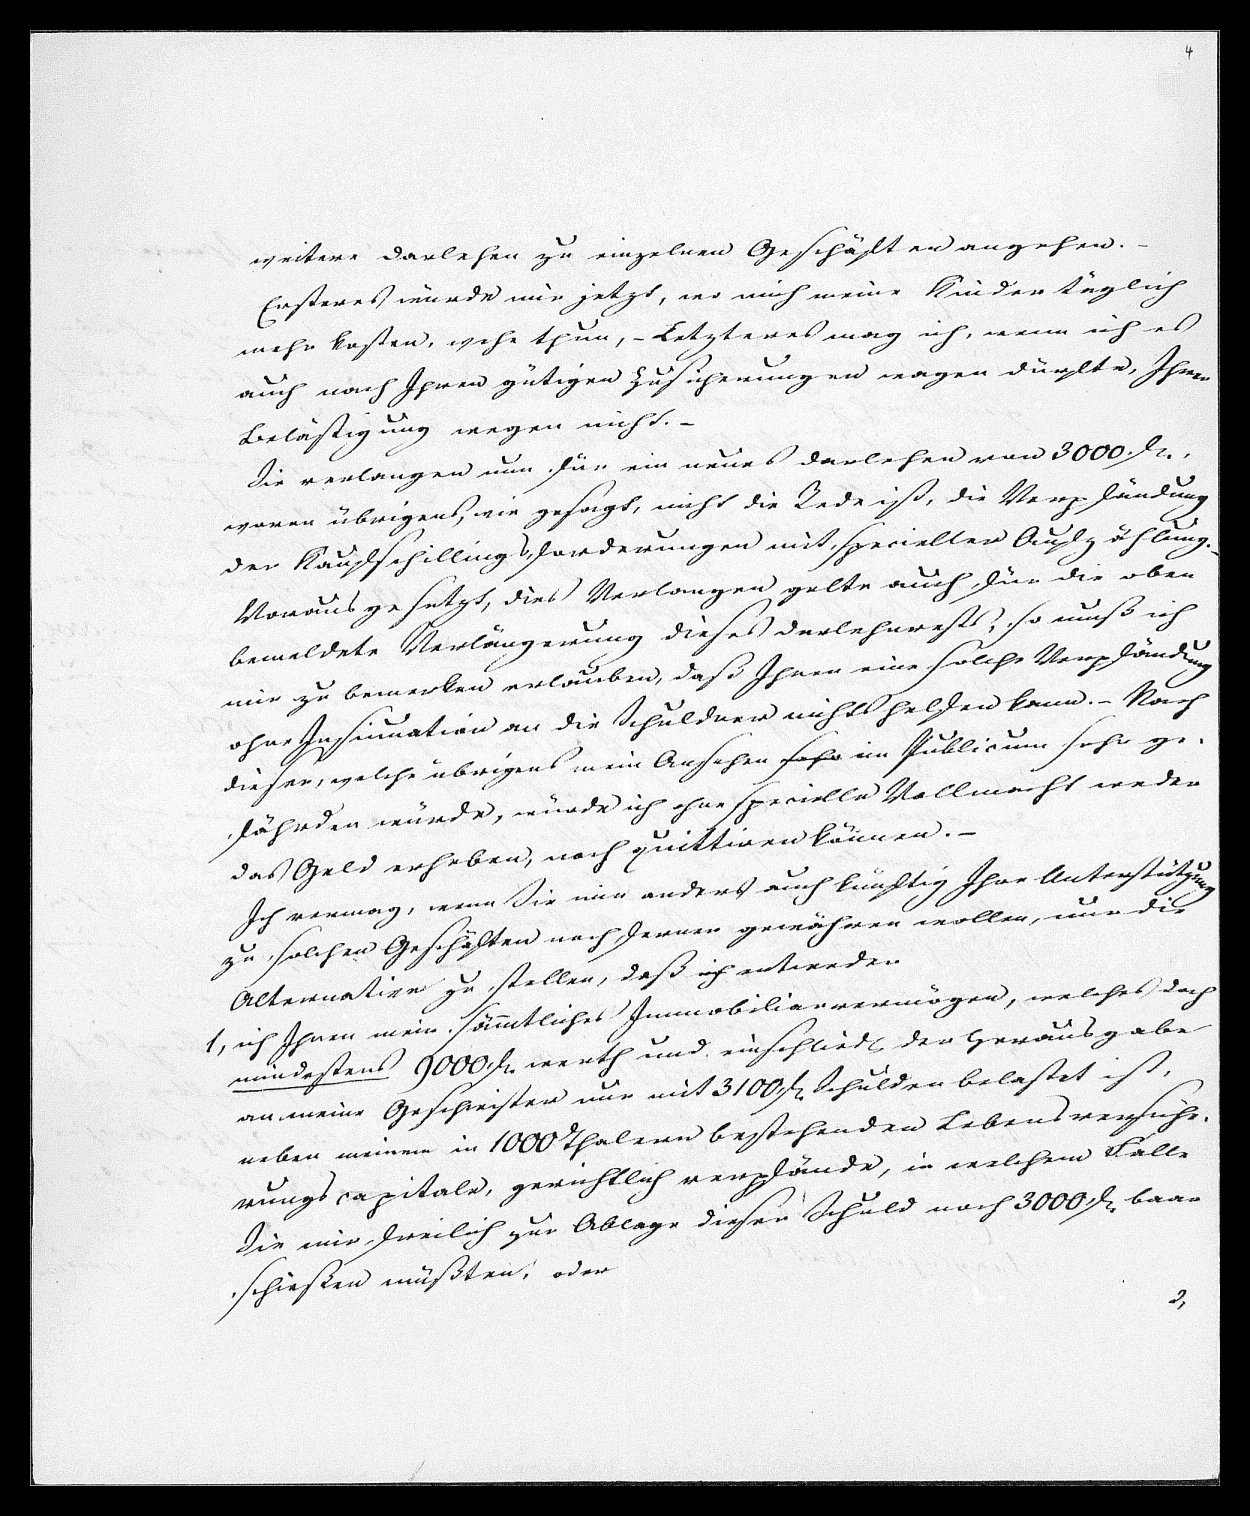 4
weitere Darlehen zu einzelnen Geschäften angehen. –
Ersteres würde mir jetzt, wo mich meine Kinder täglich
mehr kosten, wehe thun, – Letzteres mag ich, wenn ich es
auch nach Ihren gütigen Zusicherungen wagen dürfte, Ihrer
Belästigung wegen nicht. –
Sie verlangen nun für ein neues Darlehen von 3000 fl.,
wovon übrigens, wie gesagt, nicht die Rede ist, die Verpfändung
der Kaufschillingsforderungen mit specieller Aufzählung. –
Voraus gesetzt, dies Verlangen gelte auch für die oben
bemeldete Verlängerung dieses Darlehnrests, so muß ich
mir zu bemerken erlauben, daß Ihnen eine solche Verpfändung
ohne Insinuation an die Schuldner nichts helfen kann. – Nach
dieser, welche übrigens mein Ansehen sehr im Publicum sehr ge-
fährden würde, würde ich ohne specielle Vollmacht weder
das Geld erheben, noch quittiren können. –
Ich vermag, wenn Sie mir anders auch künftig Ihre Unterstützung
zu solchen Geschäften noch ferner gewähren wollen, nur die
Alternative zu stellen, daß ich entweder
1, ich Ihnen mein sämtliches Immobiliarvermögen, welches doch
mindestens 9000 fl. werth und einschließl. der Herausgabe
an meine Geschwister nur mit 3100 fl. Schulden belastet ist,
neben meinem in 1000 Thalern bestehenden Lebensversiche-
rungscapitale, gerichtlich verpfände, in welchem Falle
Sie mir freilich zur Ablage dieser Schuld noch 3000 fl. baar
schießen müßten, oder
2,